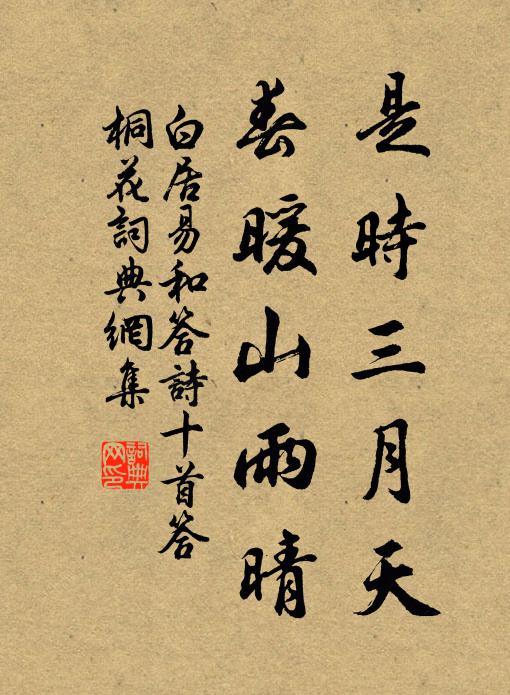 是時三月天
春暖山雨晴
白居易和答詩十首答
桐花詞典網集
詞典網印